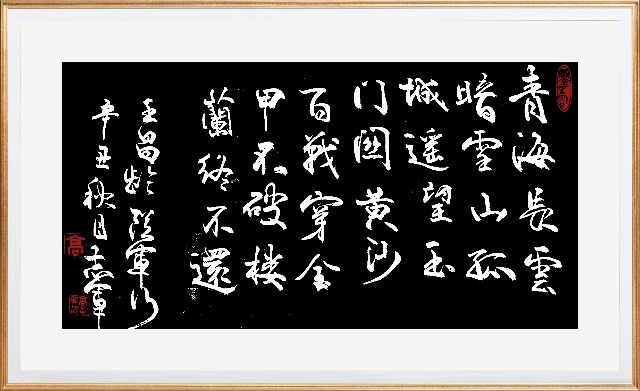 青海長雲
暗雪山孤
城遥望玉
门関黄沙
百戰穿金
甲不破楼
蘭終不還
王昌齡從軍行
辛丑秋月
高